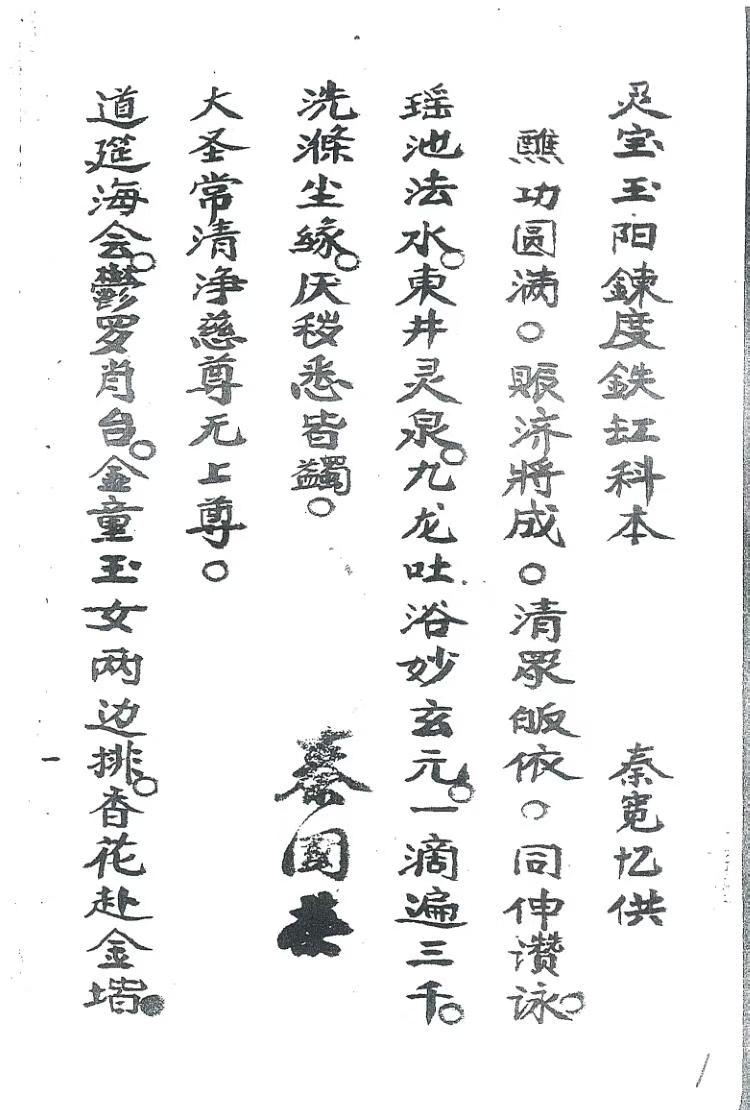 灵宝玉阳鍊度鉄缸科本 秦宽忆供
醮功圆满○賑济將成○清眾皈依○同伸讚詠○
瑶池法水○東井灵泉○九龙吐浴妙玄元○一滴遍三千○
洗滌尘緣○厌秽悉皆蠲○
秦國
大圣常清净慈尊无上尊○
道筵海会○鬱罗肖台○金童玉女两边排○香花赴金堦
一
1